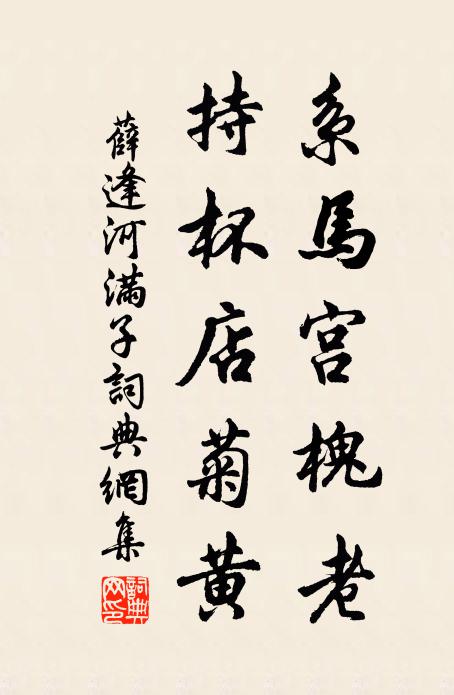 系馬宮槐老
持杯店菊黄
薛逢河满子詞典網集
詞典網印